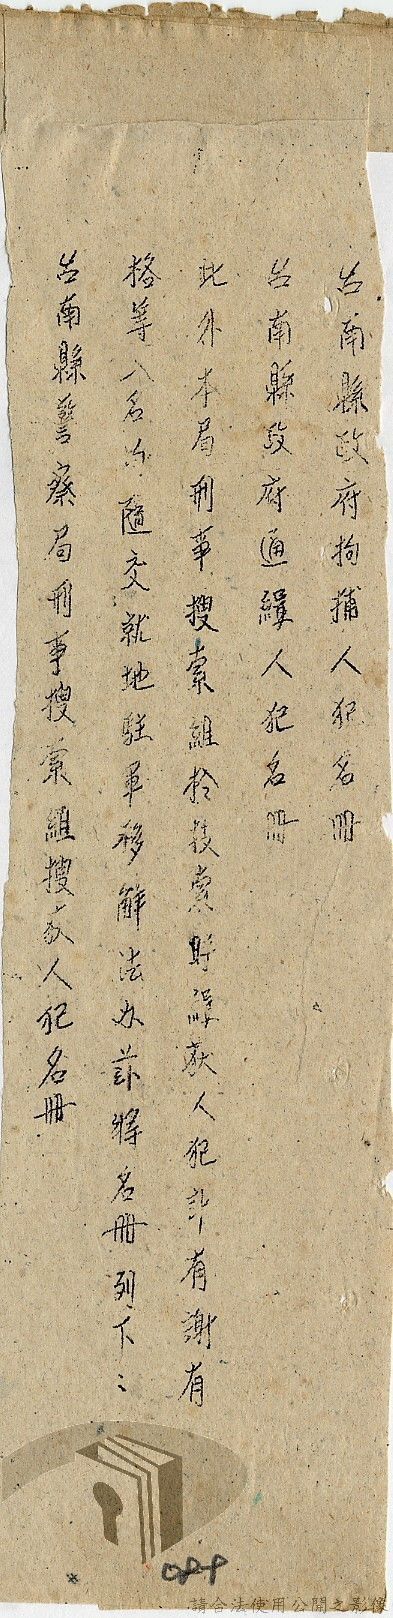 台南縣政府拘捕人犯名冊
台南縣政府通緝人犯名冊
此外本局刑事搜索組於搜索時緝獲人犯計有謝有
格等八名亦隨交就地駐軍移解法办茲將名冊列下：
台南縣警察局刑事搜索組搜獲人犯名冊
084
請合法使用公開之影像